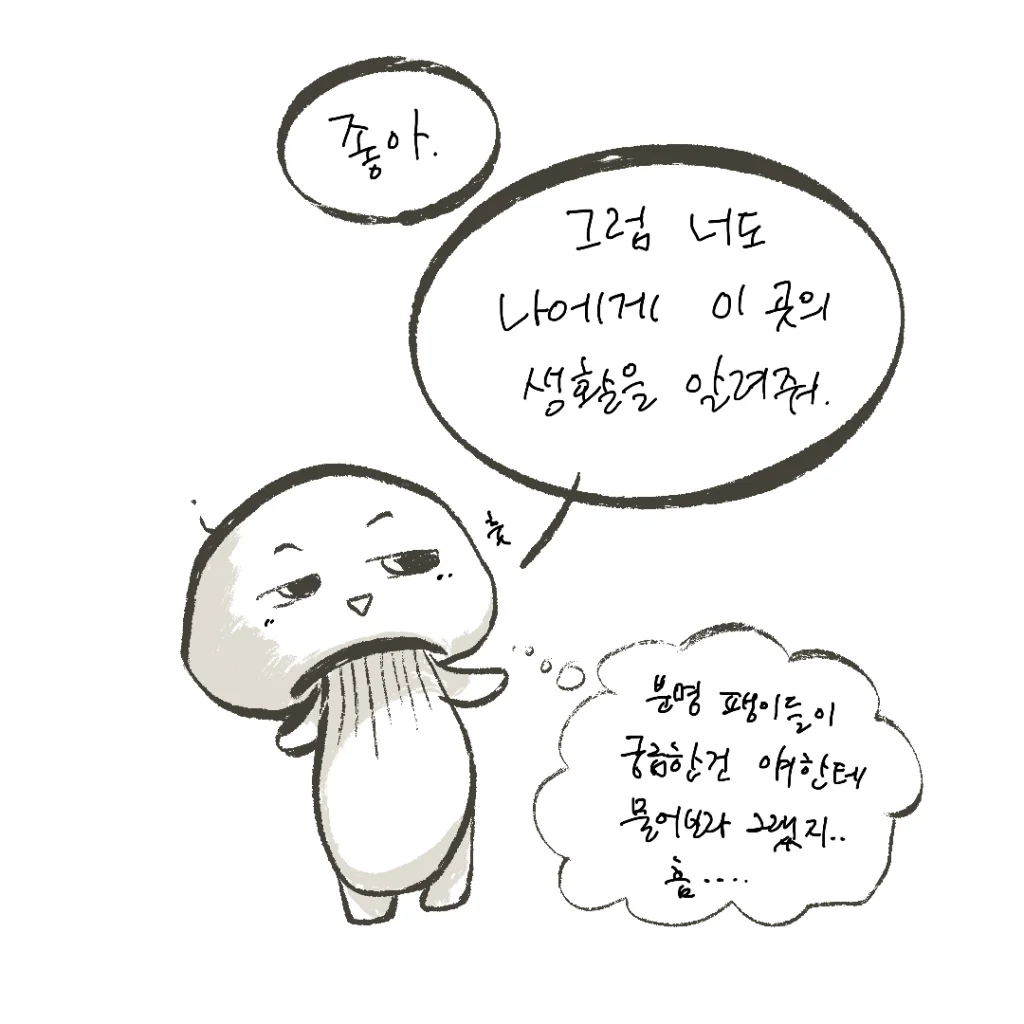 좋아.
그럼 너도
나에게 이 곳의
생활을 알려줘.
흣
분명 팽이들이
궁금한건 얘한테
물어보라 그랬지..
흠....